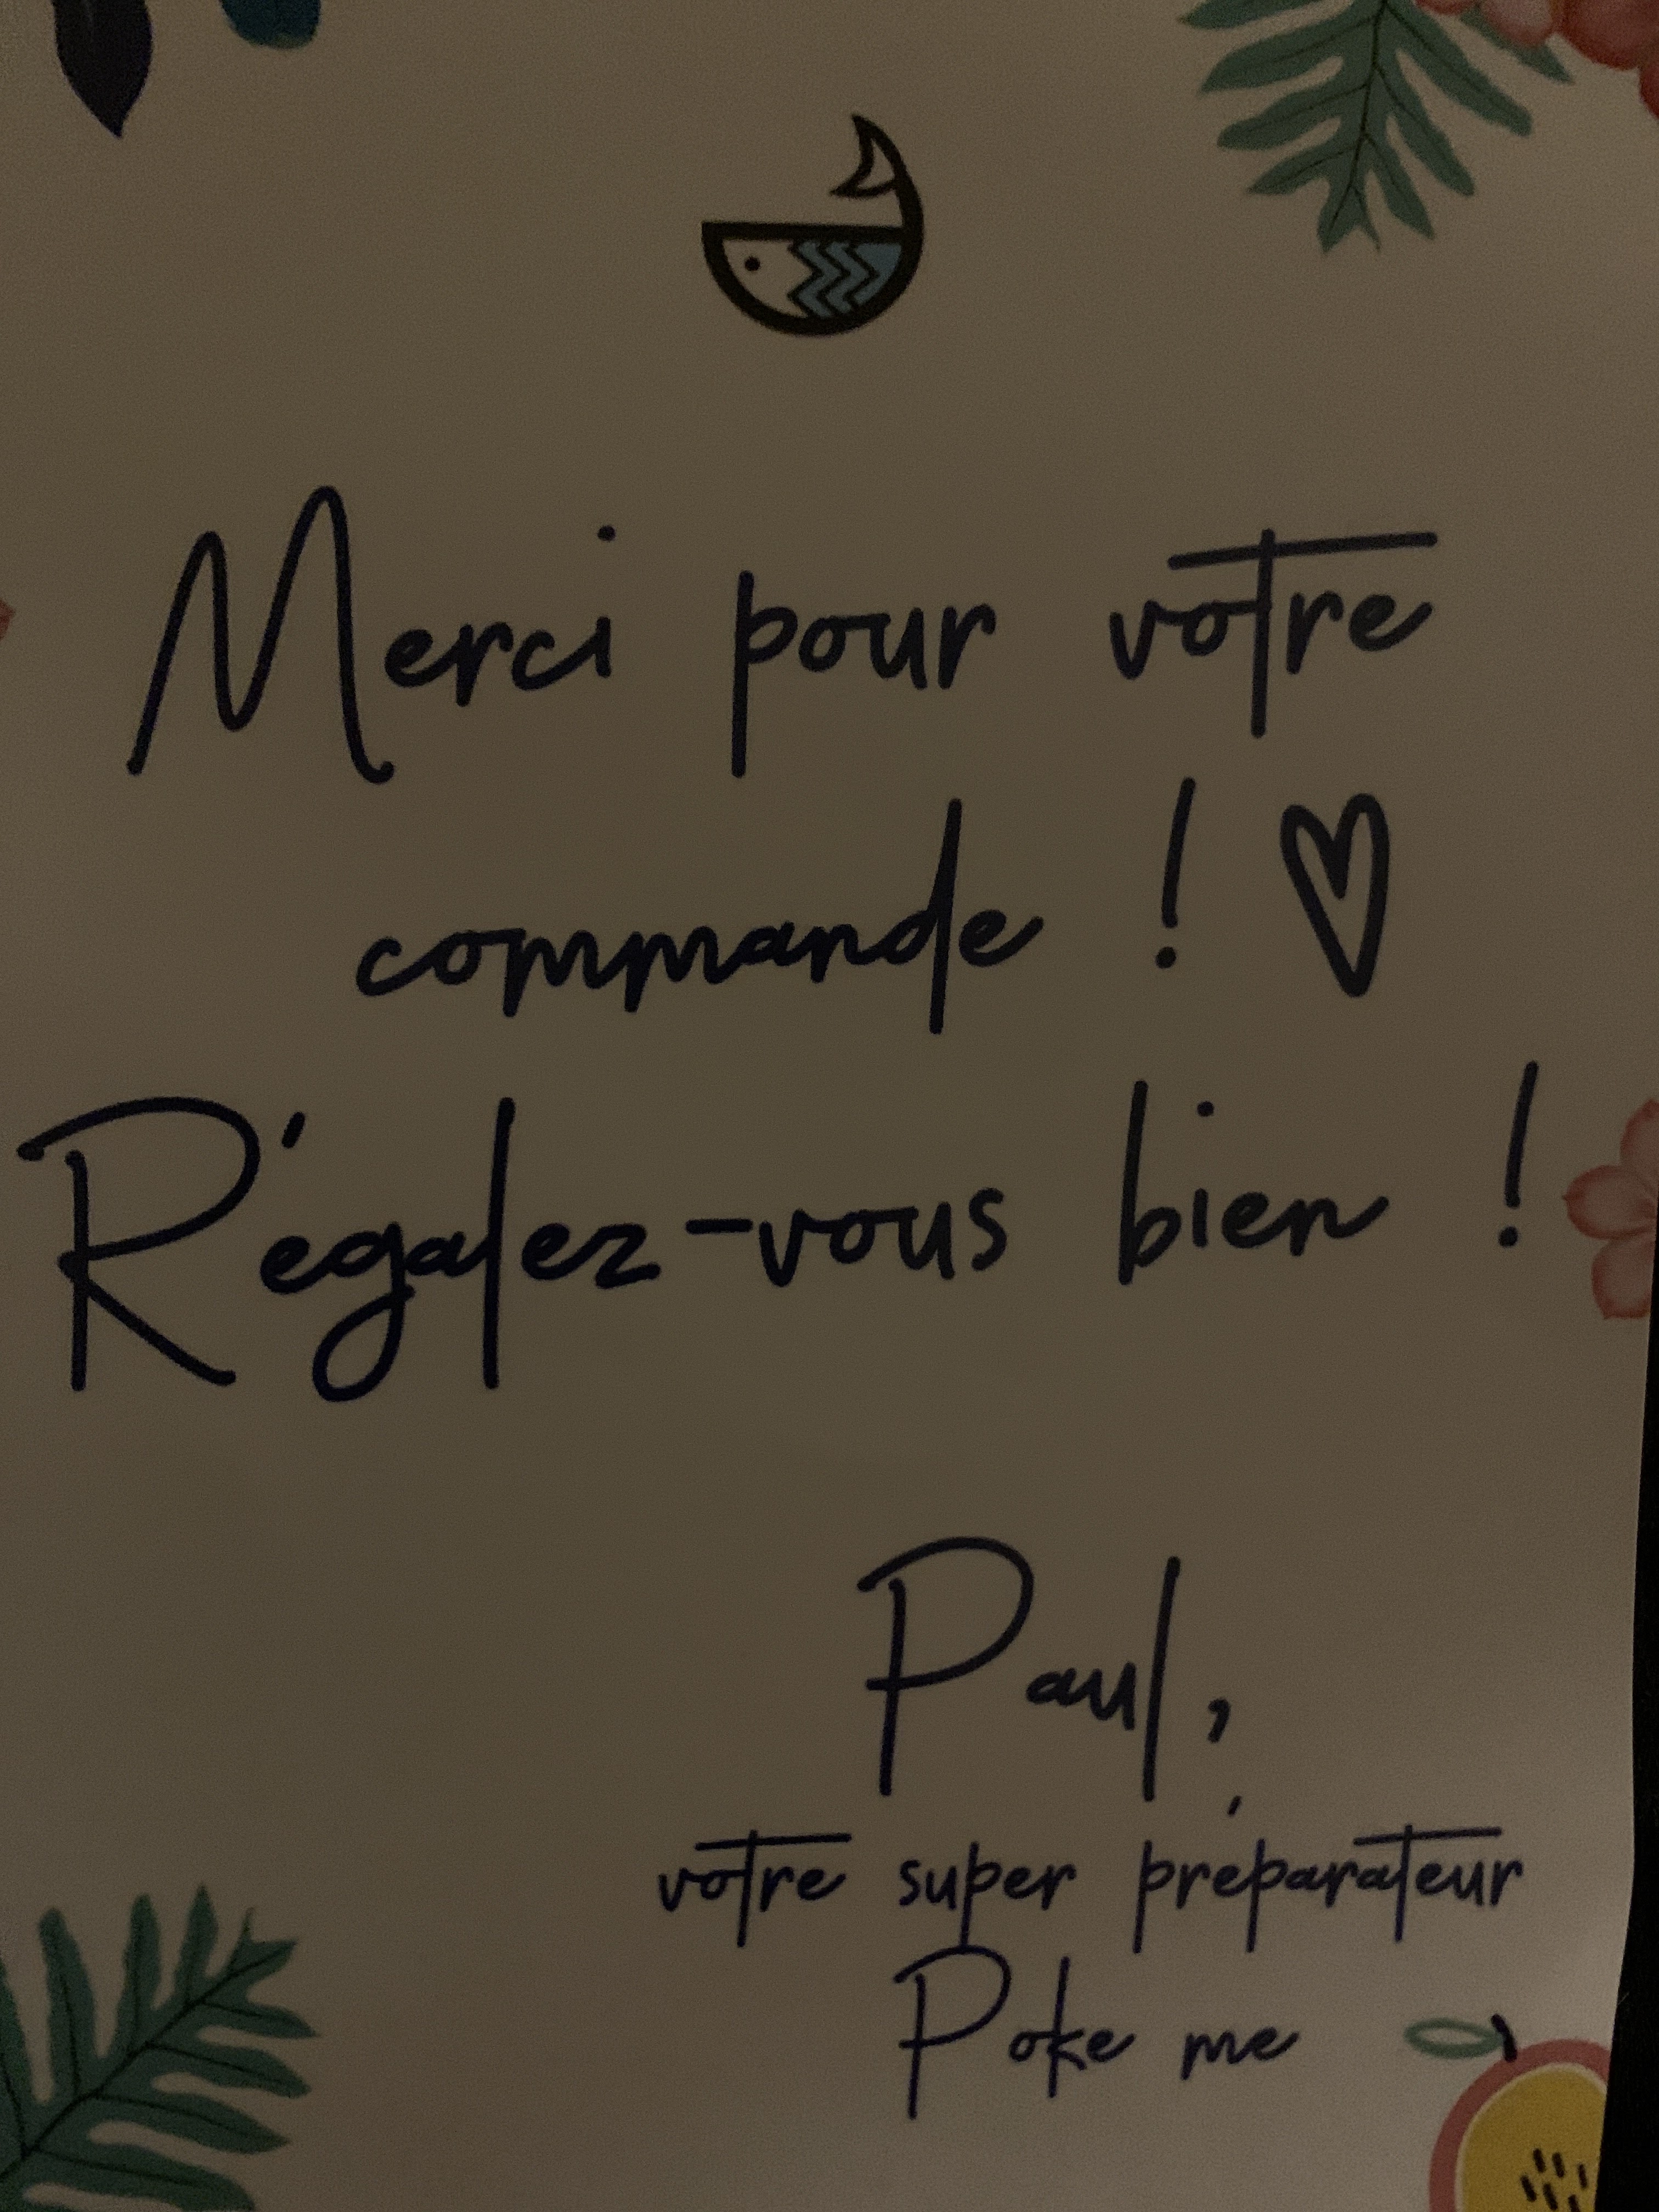 Merci pour votre
commande ! ♡
Régalez-vous bien !
Paul,
votre super préparateur
Poke me